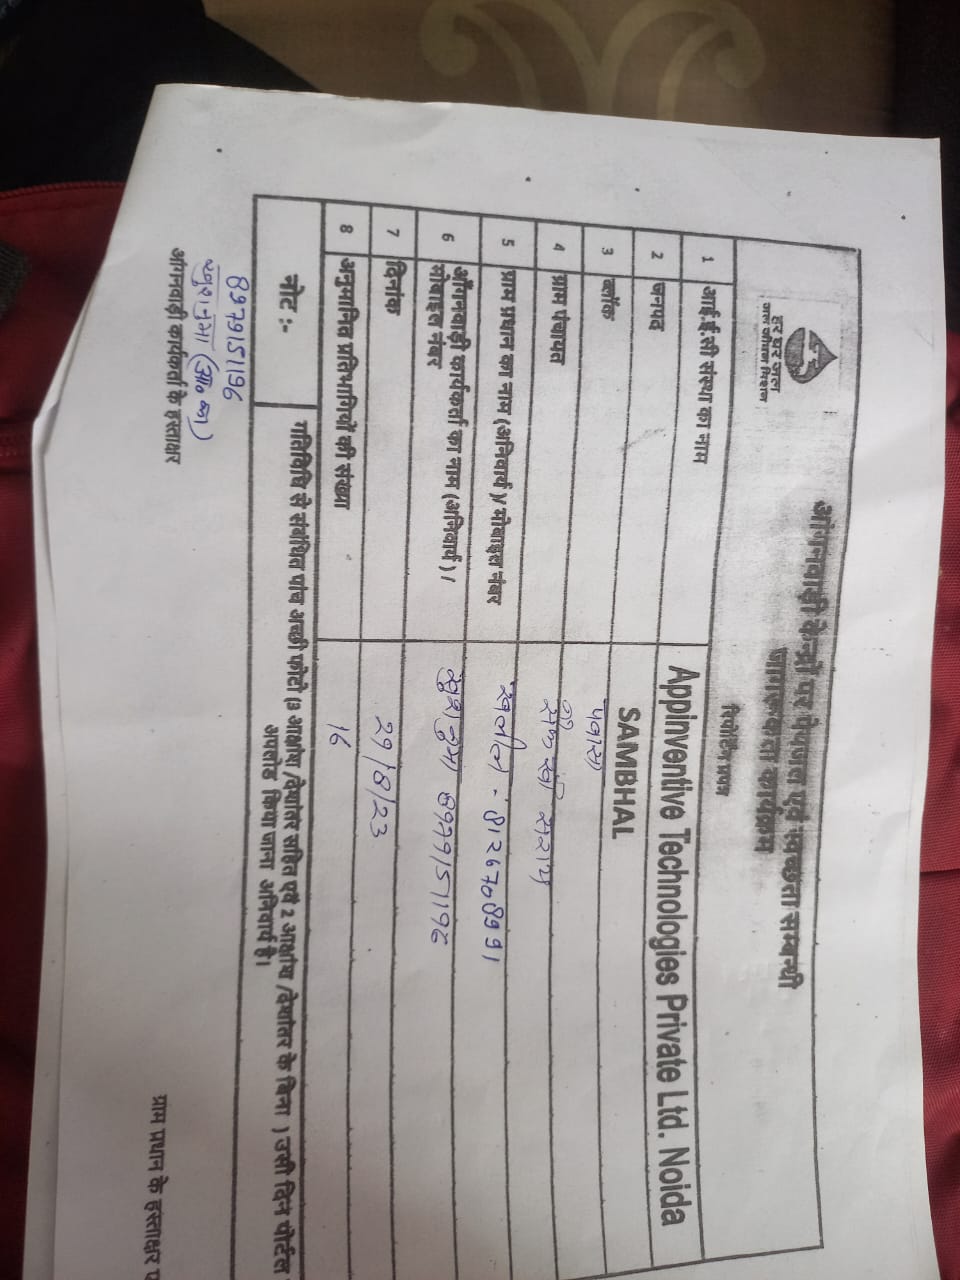 हर घर जल
जल जीवन मिशन
आंगनवाड़ी केन्द्रों पर पेयजल एवं स्वच्छता सम्बन्धी
जागरूकता कार्यक्रम
रिपोर्टिंग प्रपत्र
1 आई.ई.सी संस्था का नाम Appinventive Technologies Private Ltd. Noida
2 जनपद SAMBHAL
3 ब्लॉक पवासा
4 ग्राम पंचायत सराय
5 ग्राम प्रधान का नाम (अनिवार्य)/ मोबाइल नंबर - 8126708991
6 आँगनवाड़ी कार्यकर्ता का नाम (अनिवार्य) /
मोबाइल नंबर खुशनुमा 8979151196
7 दिनांक 29/8/23
8 अनुमानित प्रतिभागियों की संख्या 16
नोट :- गतिविधि से संबंधित पांच अच्छी फोटो (3 अक्षांश /देशांतर सहित एवं 2 अक्षांश /देशांतर के बिना ) उसी दिन पोर्टल
अपलोड किया जाना अनिवार्य है।
8979151196
खुशनुमा (आं० का)
आंगनवाड़ी कार्यकर्ता के हस्ताक्षर
ग्राम प्रधान के हस्ताक्षर